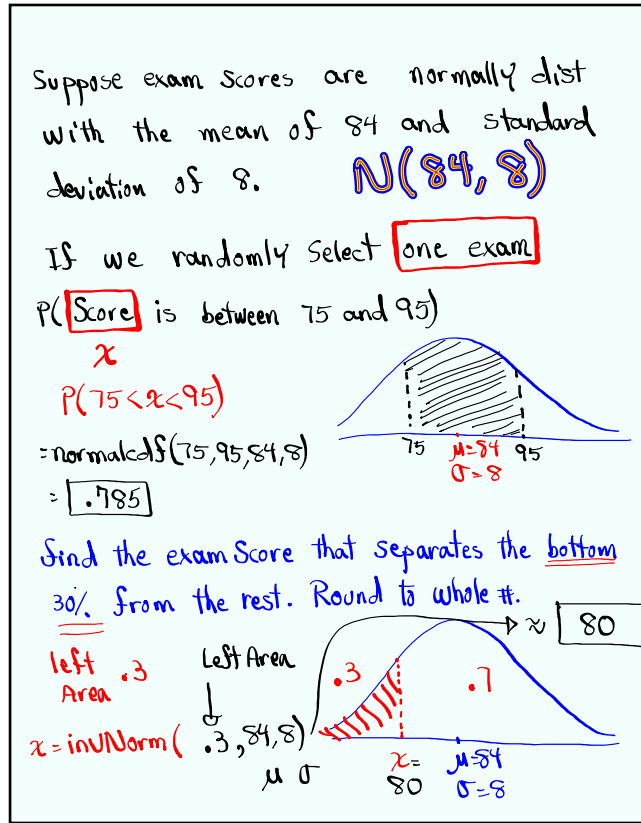 Suppose exam scores are normally dist
with the mean of 84 and standard
deviation of 8. N(84, 8)
If we randomly select one exam
P(Score is between 75 and 95)
x
P(75<x<95)
=normalcdf(75,95,84,8)
= .785
75 μ=84 95
σ=8
find the exam Score that separates the bottom
30% from the rest. Round to whole #.
≈ 80
left Area .3
Left Area
.3 .7
x = invNorm( .3,84,8)
μ σ
x= μ=84
80 σ=8